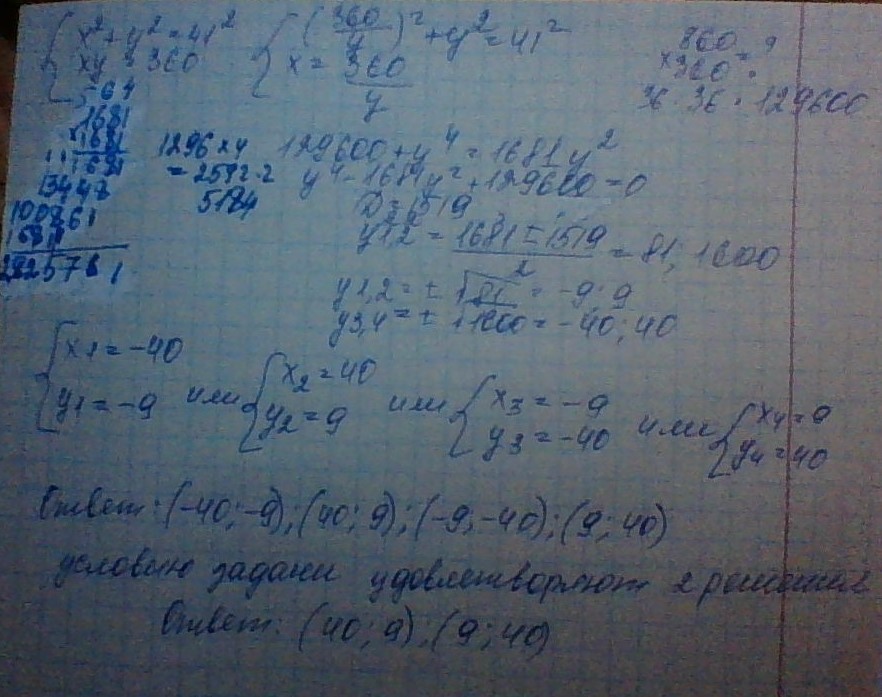 { x² + y² = 41²
xy = 360
{ (360/y)² + y² = 41²
x = 360/y
360
× 360 = ?
36 · 36 = 129600
564
1681
×1681
1681
13448
10086
1681
2825761
1296 × 4
= 2592 · 2
5184
129600 + y⁴ = 1681y²
y⁴ - 1681y² + 129600 = 0
D = 1519²
y²1,2 = (1681 ± 1519)/2 = 81; 1600
y1,2 = ± √81 = -9; 9
y3,4 = ± √1600 = -40; 40
{ x1 = -40
y1 = -9
или { x2 = 40
y2 = 9
или { x3 = -9
y3 = -40
или { x4 = 9
y4 = 40
Ответ: (-40; -9); (40; 9); (-9; -40); (9; 40)
условию задачи удовлетворяют 2 решения
Ответ: (40; 9); (9; 40)